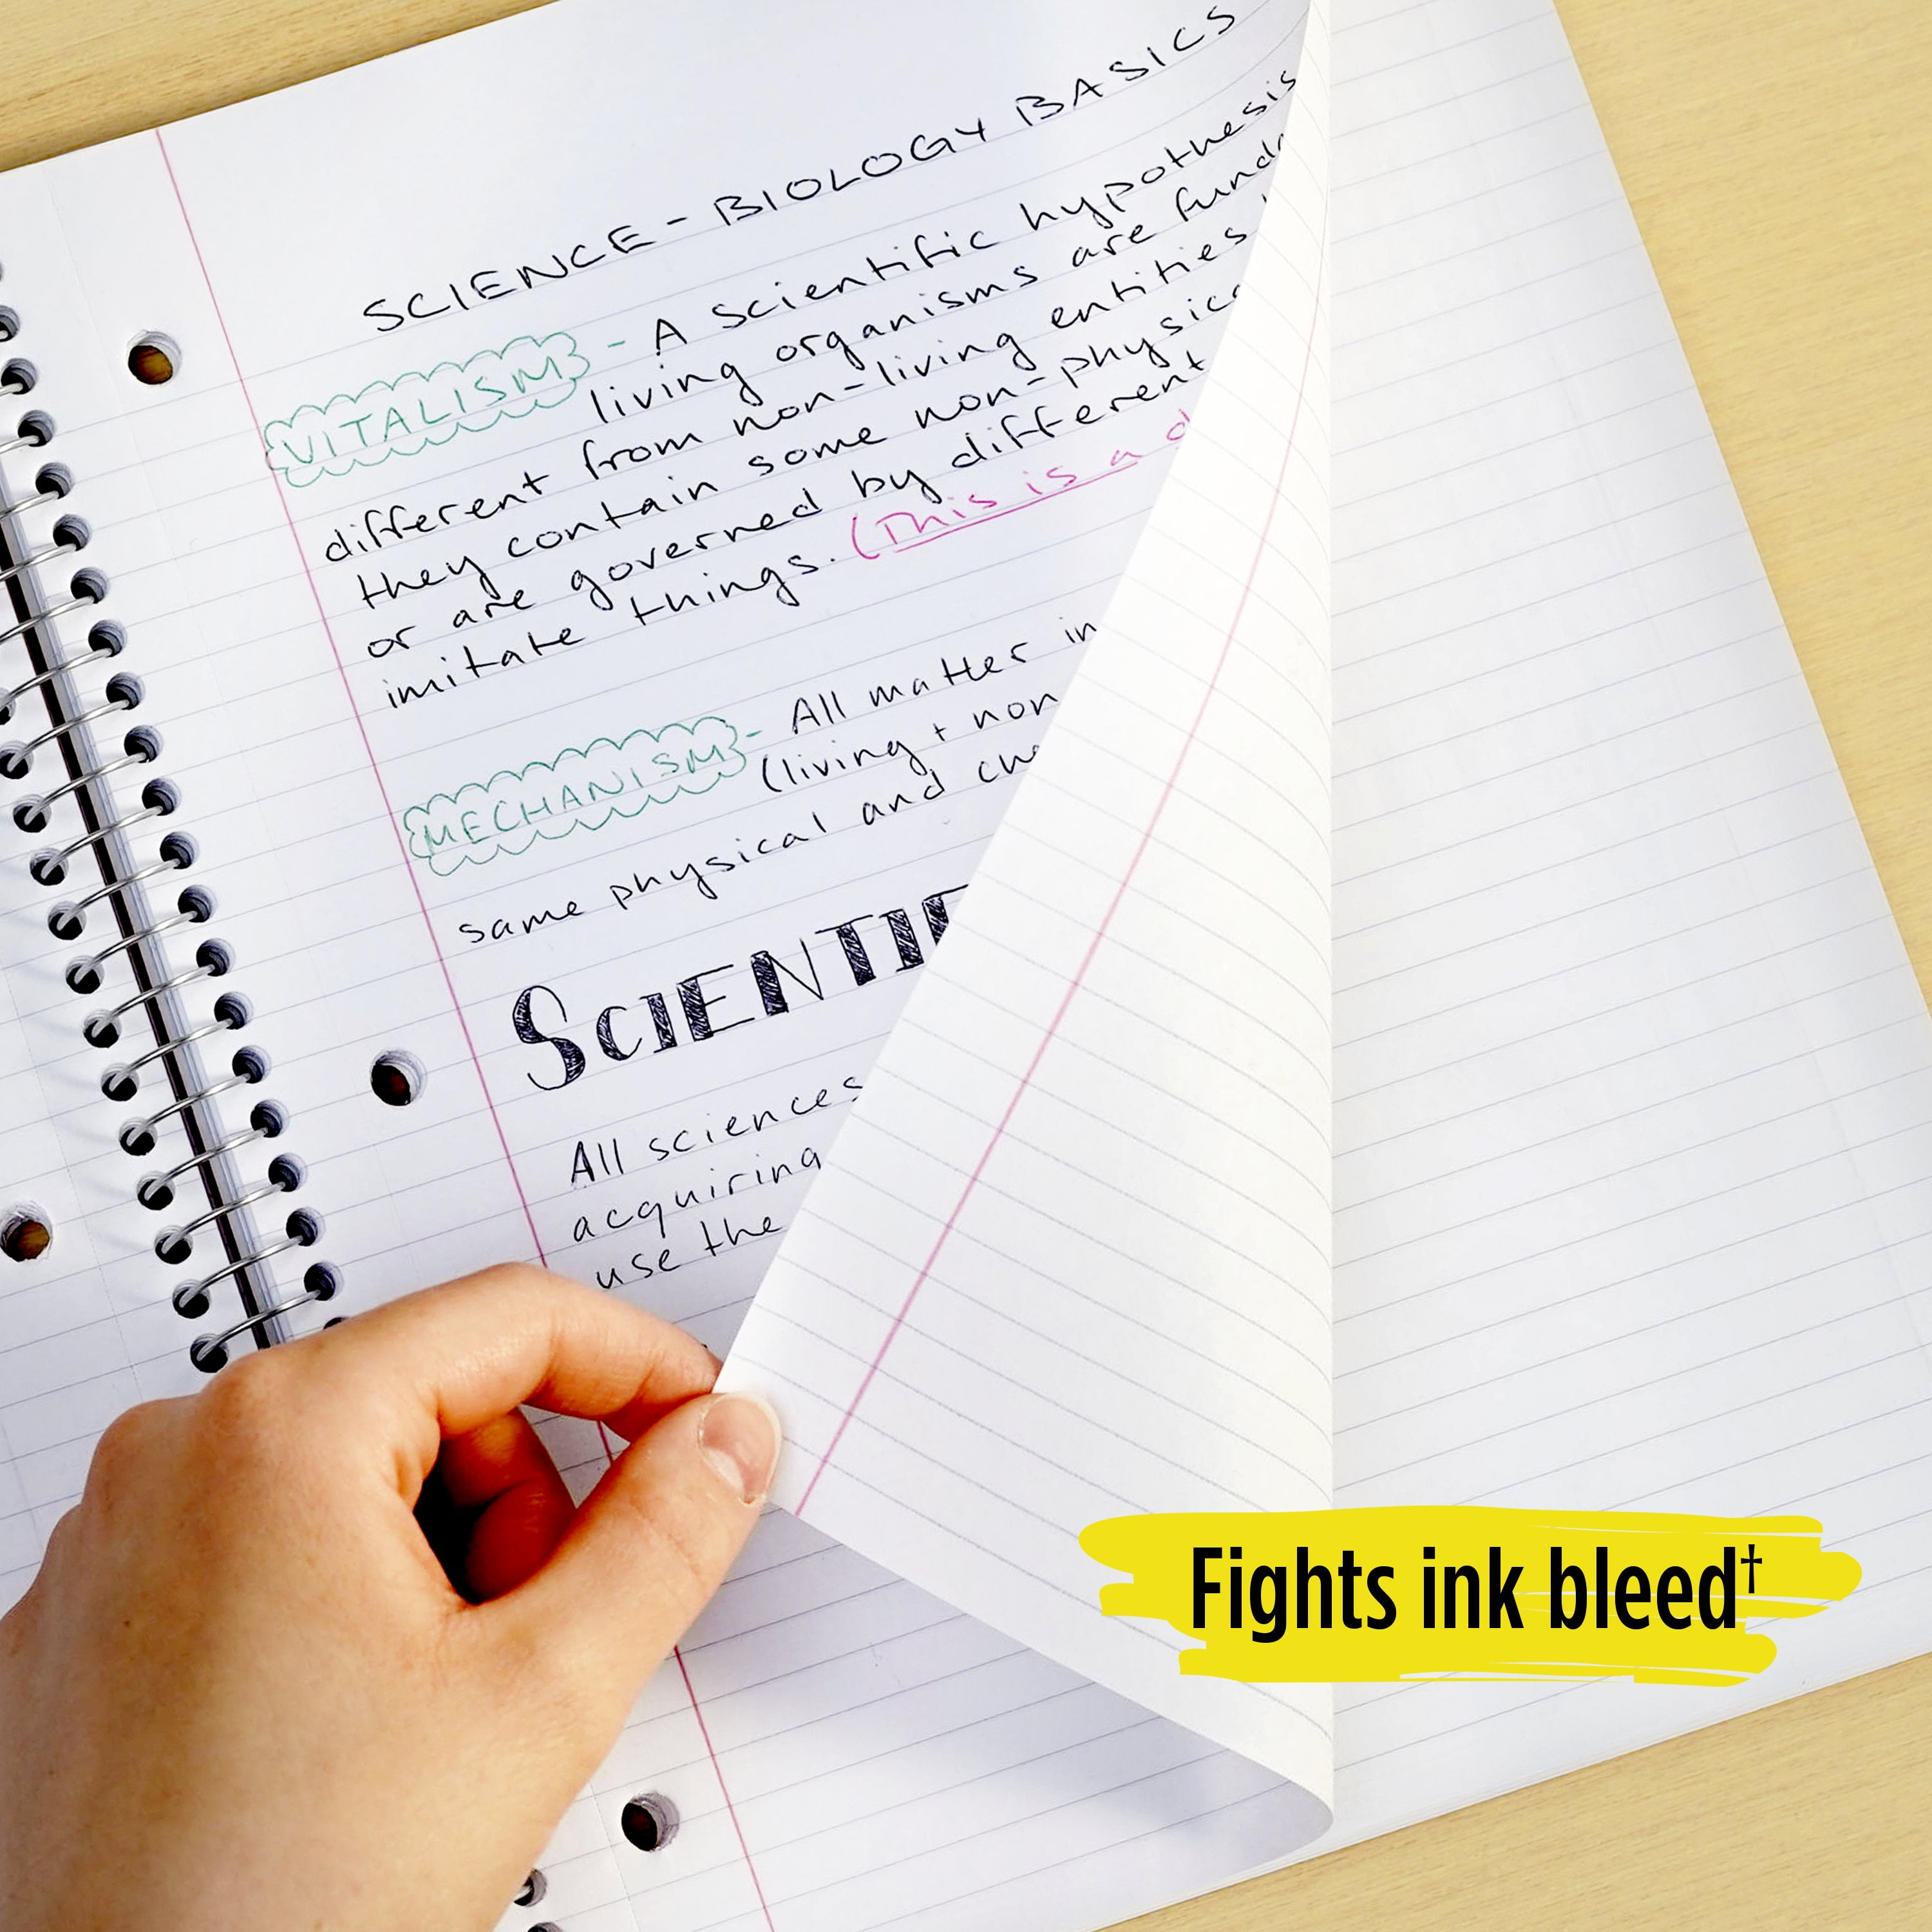 SCIENCE - BIOLOGY BASICS
VITALISM - A scientific hypothesis
living organisms are
different from non-living entities
they contain some
or are governed by different
imitate things. (This is a
MECHANISM - All matter in
(living + non
same physical and
SCIENTIF
All sciences
acquiring
use the
Fights ink bleed†